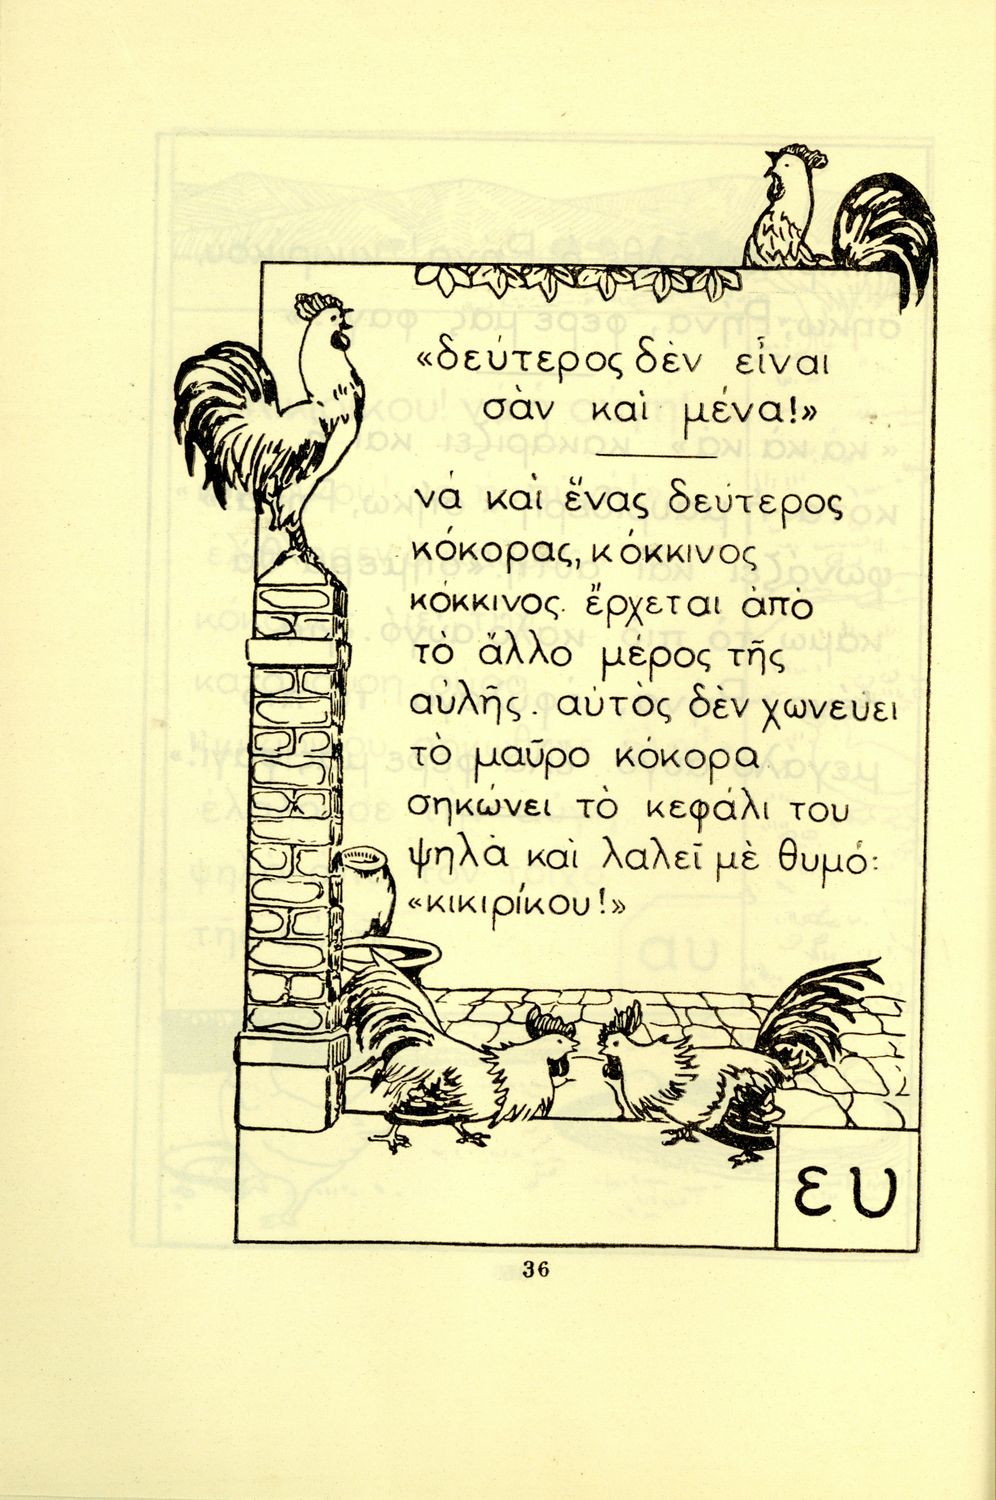 «δεύτερος δὲν εἶναι
σὰν καὶ μένα!»
νά καὶ ἕνας δεύτερος
κόκορας, κόκκινος
κόκκινος. ἔρχεται ἀπὸ
τὸ ἄλλο μέρος τῆς
αὐλῆς. αὐτὸς δὲν χωνεύει
τὸ μαῦρο κόκορα
σηκώνει τὸ κεφάλι του
ψηλὰ καὶ λαλεῖ μὲ θυμό:
«κικιρίκου!»
ευ
36